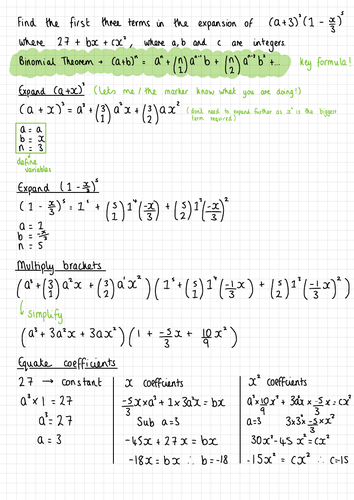 Find the first three terms in the expansion of (a+3)³(1 - x/3)⁵
where 27 + bx + cx², where a, b and c are integers.
Binomial Theorem → (a+b)ⁿ = aⁿ + (n 1) aⁿ⁻¹ b + (n 2) aⁿ⁻² b² + ... key formula!
Expand (a+x)³ (lets me / the marker know what you are doing!)
(a + x)³ = a³ + (3 1) a² x + (3 2) a x² (don't need to expand further as x² is the biggest
term required)
a = a
b = x
n = 3
define
variables
Expand (1 - x/3)⁵
(1 - x/3)⁵ = 1⁵ + (5 1) 1⁴ (-x/3) + (5 2) 1³ (-x/3)²
a = 1
b = -x/3
n = 5
Multiply brackets
(a³ + (3 1) a² x + (3 2) a¹ x²) (1⁵ + (5 1) 1⁴ (-1/3) + (5 2) 1³ (-1/3 x)²)
simplify
(a³ + 3a²x + 3ax²) (1 + -5/3 x + 10/9 x²)
Equate coefficients
27 → constant
a³ × 1 = 27
a³ = 27
a = 3
x coefficients
-5/3 x × a³ + 1 × 3a²x = bx
Sub a = 3
-45x + 27x = bx
-18x = bx ∴ b = -18
x² coefficients
a³ × 10/9 x² + 3ax × -5/3 x = cx²
a=3 3×3² × -5/3 × x²
30x² - 45x² = cx²
-15x² = cx² ∴ c = -15